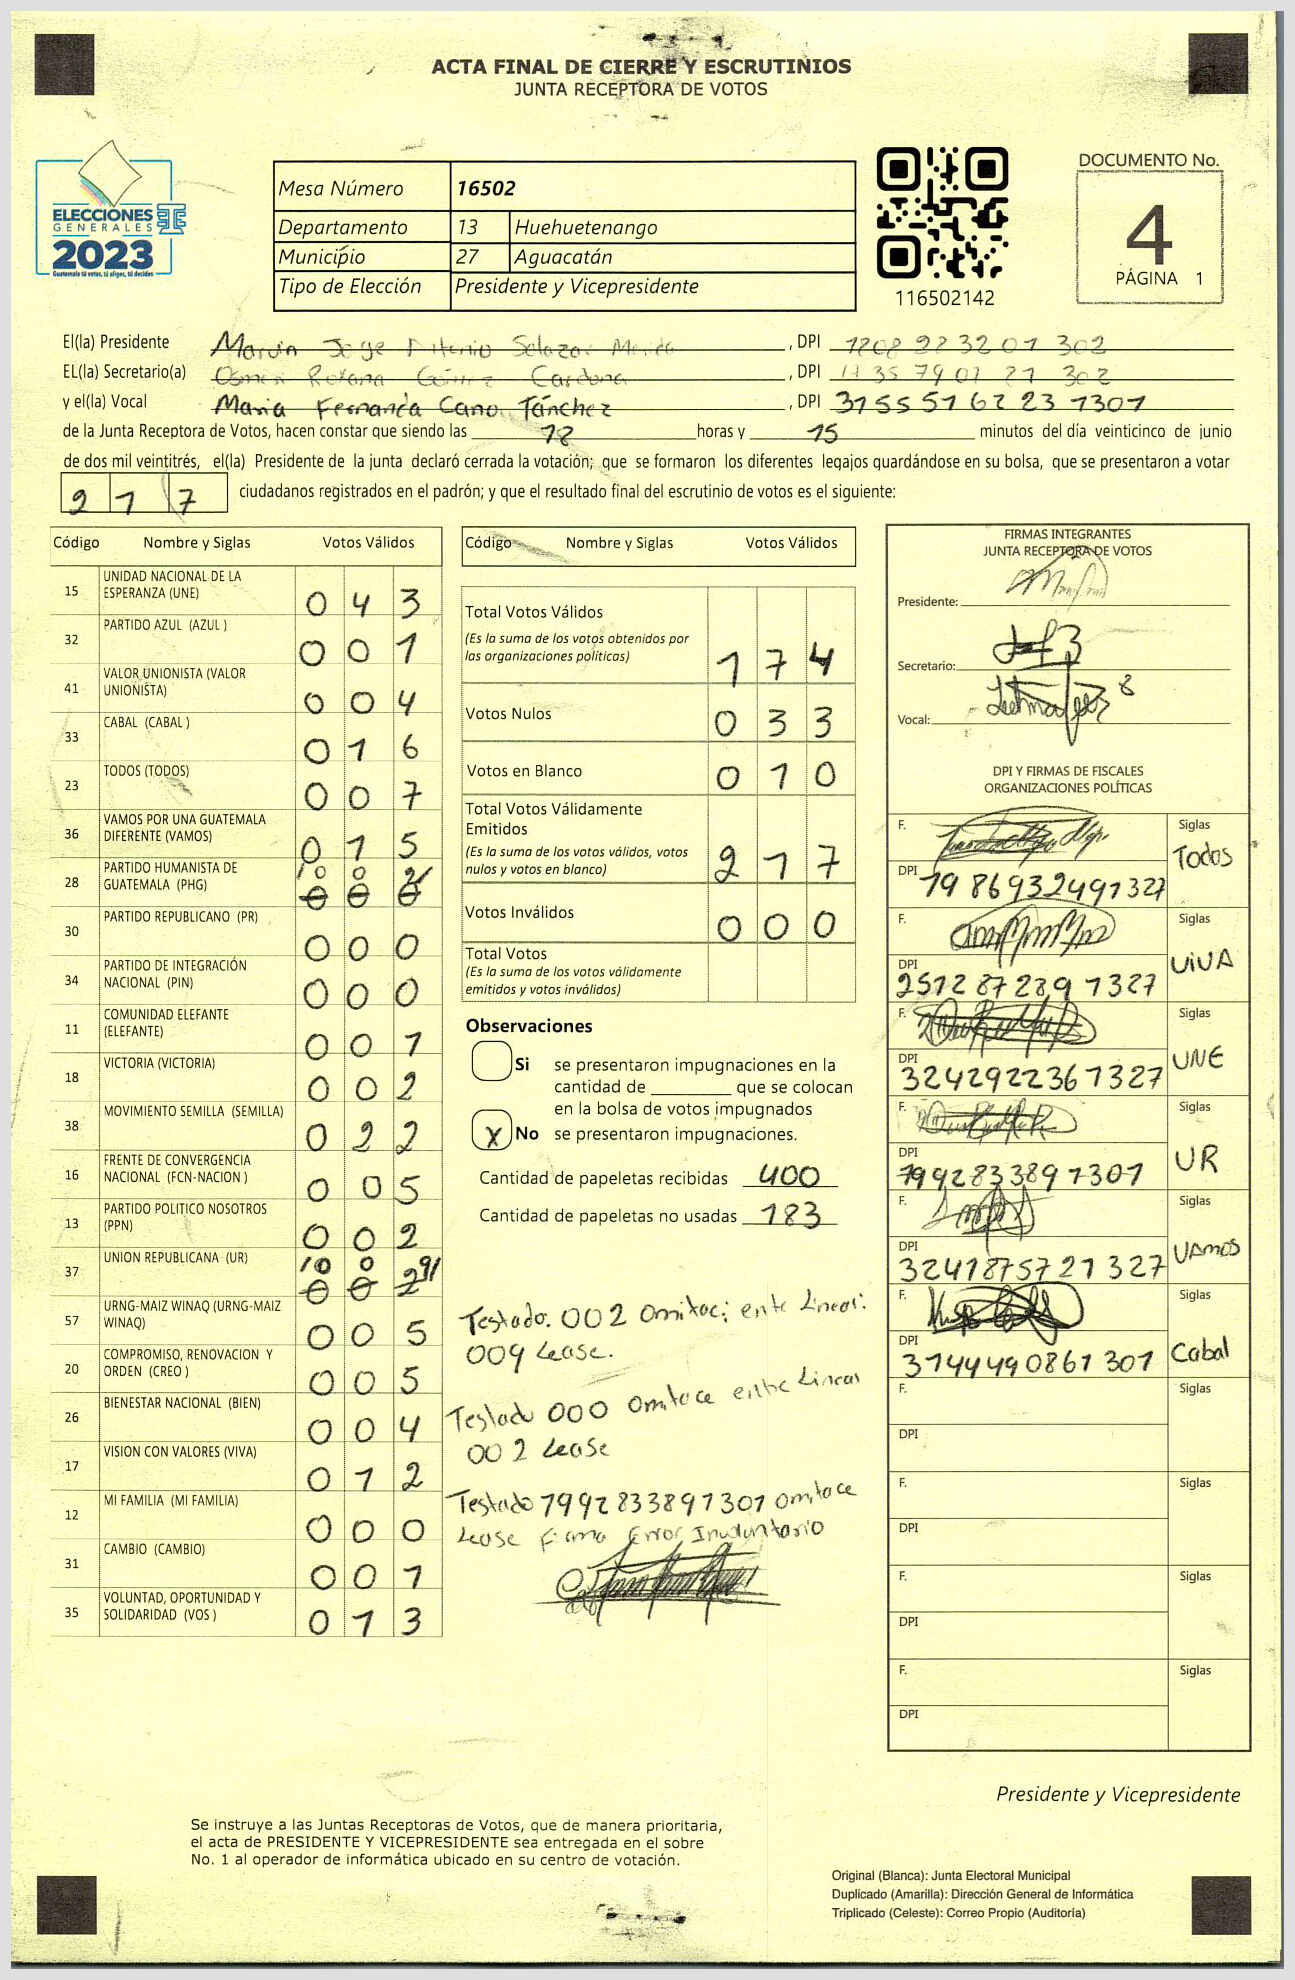 ACTA FINAL DE CIERRE Y ESCRUTINIOS
JUNTA RECEPTORA DE VOTOS
ELECCIONES
GENERALES
2023
Guatemala tú votas, tú eliges, tú decides
Mesa Número 16502
Departamento 13 Huehuetenango
Municipio 27 Aguacatán
Tipo de Elección Presidente y Vicepresidente
116502142
DOCUMENTO No.
4
PÁGINA 1
El(la) Presidente Marvin Jorge Antonio Salazar , DPI 1208 98320 1 302
EL(la) Secretario(a) Gómez Cardona , DPI
y el(la) Vocal Maria Fernanda Cano Tánchez , DPI 31555162231301
de la Junta Receptora de Votos, hacen constar que siendo las 18 horas y 15 minutos del día veinticinco de junio
de dos mil veintitrés, el(la) Presidente de la junta declaró cerrada la votación; que se formaron los diferentes legajos guardándose en su bolsa, que se presentaron a votar
217 ciudadanos registrados en el padrón; y que el resultado final del escrutinio de votos es el siguiente:
Código Nombre y Siglas Votos Válidos
15 UNIDAD NACIONAL DE LA ESPERANZA (UNE) 0 4 3
32 PARTIDO AZUL (AZUL ) 0 0 1
41 VALOR UNIONISTA (VALOR UNIONISTA) 0 0 4
33 CABAL (CABAL ) 0 1 6
23 TODOS (TODOS) 0 0 7
36 VAMOS POR UNA GUATEMALA DIFERENTE (VAMOS) 0 1 5
28 PARTIDO HUMANISTA DE GUATEMALA (PHG) 0 0 2/ 0 0 0
30 PARTIDO REPUBLICANO (PR) 0 0 0
34 PARTIDO DE INTEGRACIÓN NACIONAL (PIN) 0 0 0
11 COMUNIDAD ELEFANTE (ELEFANTE) 0 0 1
18 VICTORIA (VICTORIA) 0 0 2
38 MOVIMIENTO SEMILLA (SEMILLA) 0 2 2
16 FRENTE DE CONVERGENCIA NACIONAL (FCN-NACION ) 0 0 5
13 PARTIDO POLITICO NOSOTROS (PPN) 0 0 2
37 UNION REPUBLICANA (UR) /0 0 9/ 0 0 2
57 URNG-MAIZ WINAQ (URNG-MAIZ WINAQ) 0 0 5
20 COMPROMISO, RENOVACION Y ORDEN (CREO ) 0 0 5
26 BIENESTAR NACIONAL (BIEN) 0 0 4
17 VISION CON VALORES (VIVA) 0 1 2
12 MI FAMILIA (MI FAMILIA) 0 0 0
31 CAMBIO (CAMBIO) 0 0 1
35 VOLUNTAD, OPORTUNIDAD Y SOLIDARIDAD (VOS ) 0 1 3
Código Nombre y Siglas Votos Válidos
Total Votos Válidos
(Es la suma de los votos obtenidos por
las organizaciones políticas) 1 7 4
Votos Nulos 0 3 3
Votos en Blanco 0 1 0
Total Votos Válidamente
Emitidos
(Es la suma de los votos válidos, votos
nulos y votos en blanco) 2 1 7
Votos Inválidos 0 0 0
Total Votos
(Es la suma de los votos válidamente
emitidos y votos inválidos)
Observaciones
Si se presentaron impugnaciones en la
cantidad de ________ que se colocan
en la bolsa de votos impugnados
X No se presentaron impugnaciones.
Cantidad de papeletas recibidas 400
Cantidad de papeletas no usadas 183
Testado. 002 omitac; ente Lineas:
009 Lease.
Testado 000 omitace entre Lineas
002 Lease
Testado 1992833891301 omitace
Lease Firma Error Involuntario
FIRMAS INTEGRANTES
JUNTA RECEPTORA DE VOTOS
Presidente:
Secretario:
Vocal:
DPI Y FIRMAS DE FISCALES
ORGANIZACIONES POLÍTICAS
F. Siglas Todos
DPI 1986932491327
F. Siglas ViVA
DPI 2512872891327
F. Siglas UNE
DPI 3242922361327
F. Siglas UR
DPI 1992833891301
F. Siglas VAmos
DPI 3241875721327
F. Siglas Cabal
DPI 3144490861301
F. Siglas
DPI
F. Siglas
DPI
F. Siglas
DPI
F. Siglas
DPI
Presidente y Vicepresidente
Se instruye a las Juntas Receptoras de Votos, que de manera prioritaria,
el acta de PRESIDENTE Y VICEPRESIDENTE sea entregada en el sobre
No. 1 al operador de informática ubicado en su centro de votación.
Original (Blanca): Junta Electoral Municipal
Duplicado (Amarilla): Dirección General de Informática
Triplicado (Celeste): Correo Propio (Auditoría)